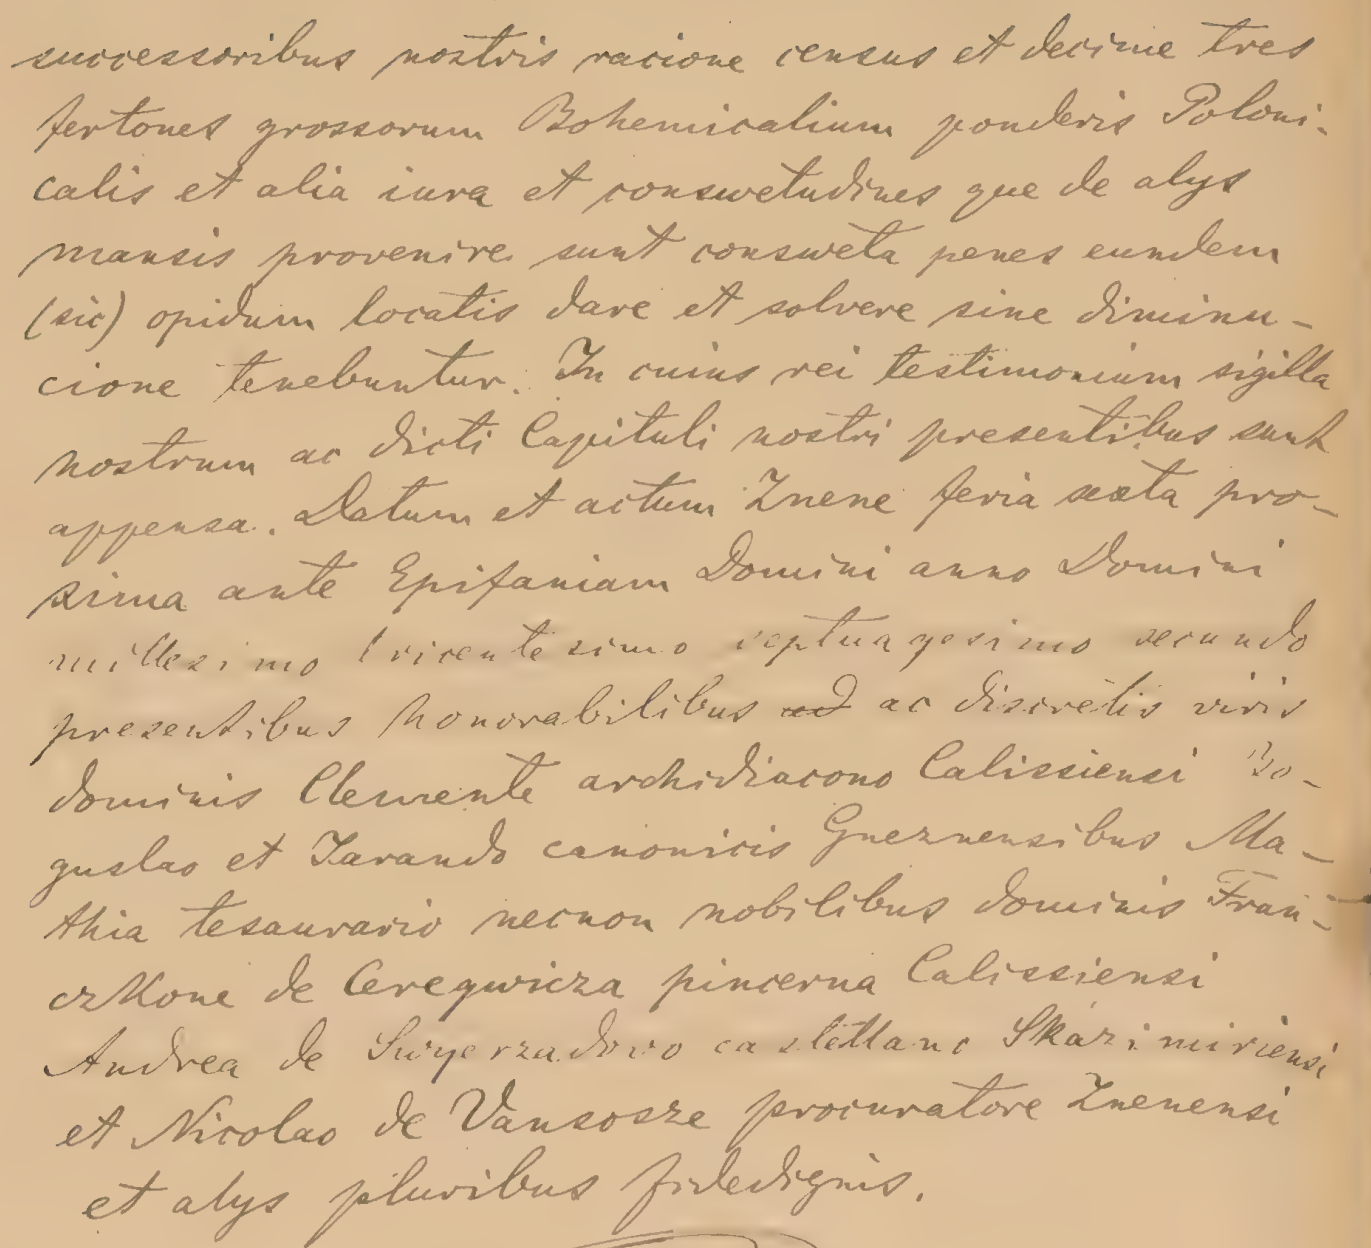 successoribus nostris racione census et decime tres
fertones grossorum Bohemicalium ponderis Poloni-
calis et alia iura et conswetudines que de alys
mansis provenire sunt consweta penes eundem
(sic) opidum locatis dare et solvere sine diminu-
cione tenebuntur. In cuius rei testimonium sigilla
nostrum ac dicti Capituli nostri presentibus sunt
appensa. Datum et actum Znene feria sexta pro-
xima ante Epifaniam Domini anno Domini
millesimo tricentesimo septuagesimo secundo
presentibus honorabilibus ac discretis viris
dominis Clemente archidiacono Calissiensi Bo-
guslao et Jarando canonicis Gneznensibus Ma-
thia tesaurario necnon nobilibus dominis Fran-
czkone de Ceregwicza pincerna Calissiensi
Andrea de Swyerzadowo castellano Skarimiriensi
et Nicolao de Vansosze procuratore Znenensi
et alys pluribus fidedignis.